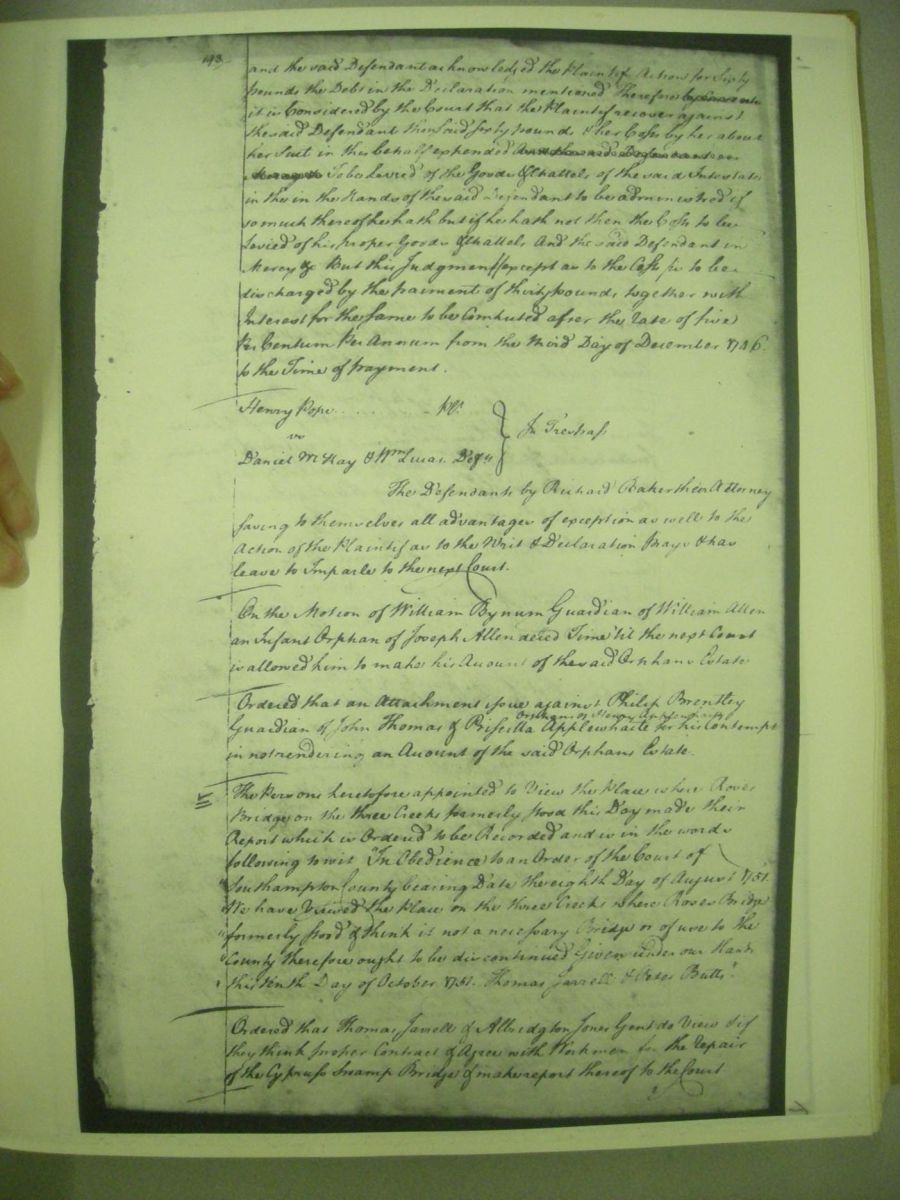 193
and the said Defendant acknowledged the Plaintif Action for Sixty
pounds the Debt in the Declaration mentioned Therefore
it is Considered by the Court that the Plaintif recover against
the said Defendant the said sixty pounds & her Costs by her about
her Suit in this behalf expended And the said Defendant
To be Levied of the Goods & Chattels of the said Intestate
in the in the Hands of the said Defendant to be administred if
so much thereof he hath but if he hath not then the Costs to be
Levied of his proper Goods & Chattels And the said Defendant in
Mercy &c But this Judgment (except as to the Costs) is to be
discharged by the paiment of thirty pounds together with
Interest for the same to be Computed after the Rate of five
Per Centum Per Annum from the third Day of December 1746
to the Time of payment.
Henry Pope Pl.
vs
In Trespass
Daniel McKay & Wm Lucas Defts
The Defendants by Richard Baker their Attorney
saving to themselves all advantages of exception as well to the
Action of the Plaintif as to the Writ & Declaration prays & has
leave to Imparle to the next Court.
On the Motion of William Bynum Guardian of William Allen
an Infant Orphan of Joseph Allen dec'ed Time 'til the next Court
is allowed him to make his Account of the said Orphans Estate
Ordered that an Attachment issue against Philip Brentley
orphans of Henry Applewhaite
Guardian of John Thomas & Priscilla Applewhaite for his contempt
in not rendering an Account of the said Orphans Estate.
The Persons heretofore appointed to View the Place where Roses
Bridge on the three Creeks formerly stood this Day made their
Report which is Ordered to be Recorded and is in the words
following to wit "In Obedience to an Order of the Court of
"Southampton County bearing Date the eighth Day of August 1751.
"We have Viewed the Place on the three Creeks where Roses Bridge
"formerly stood & think it not a necessary Bridge or of use to the
"County therefore ought to be discontinued Given under our Hands
"this tenth Day of October 1751. Thomas Jarrell & Peter Butts".
Ordered that Thomas Jarrell & Albridgton Jones Gent do View & if
they think proper Contract & Agree with Workmen for the repair
of the Cypress Swamp Bridge & make report thereof to the Court